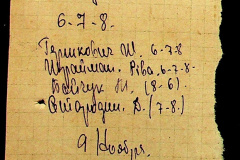 6-7-8.
Гершкович Ш. 6-7-8
Израйман. Рива. 6-7-8.
М. (8-6)
Д. (7-8.)
9 Ноября.